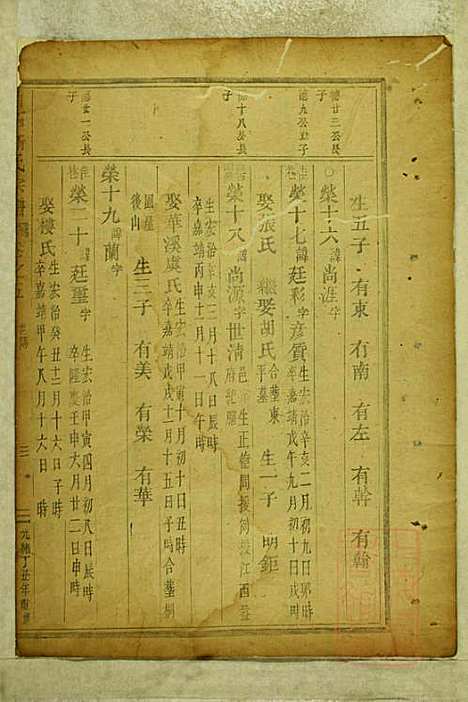 生五子 有東 有南 有左 有幹 有翰
德廿三公長子
榮十六 諱尚涯 字
德九公長子
榮十七 諱廷彩 字彦質 生宏治辛亥二月初九日卯時 卒嘉靖戊午九月初十日戌時
娶張氏 繼娶胡氏 合葬東平墓 生一子 明鉅
德十八公長子
榮十八 諱尚源 字世清 邑
生宏治辛亥二月十八日辰時
卒嘉靖丙申十月十一日午時
娶華溪虞氏 生宏治甲寅十月初十日丑時 卒嘉靖戊戌十二月十五日子時合葬
後山 生三子 有美 有榮 有華
榮十九 諱蘭 字
德廿一公長子
榮二十 諱廷璽 字 生宏治甲寅四月初八日辰時 卒隆慶壬申六月廿二日申時
娶樓氏 生宏治癸丑十二月十六日子時 卒嘉靖甲午八月十六日時
光緒丁丑年重修